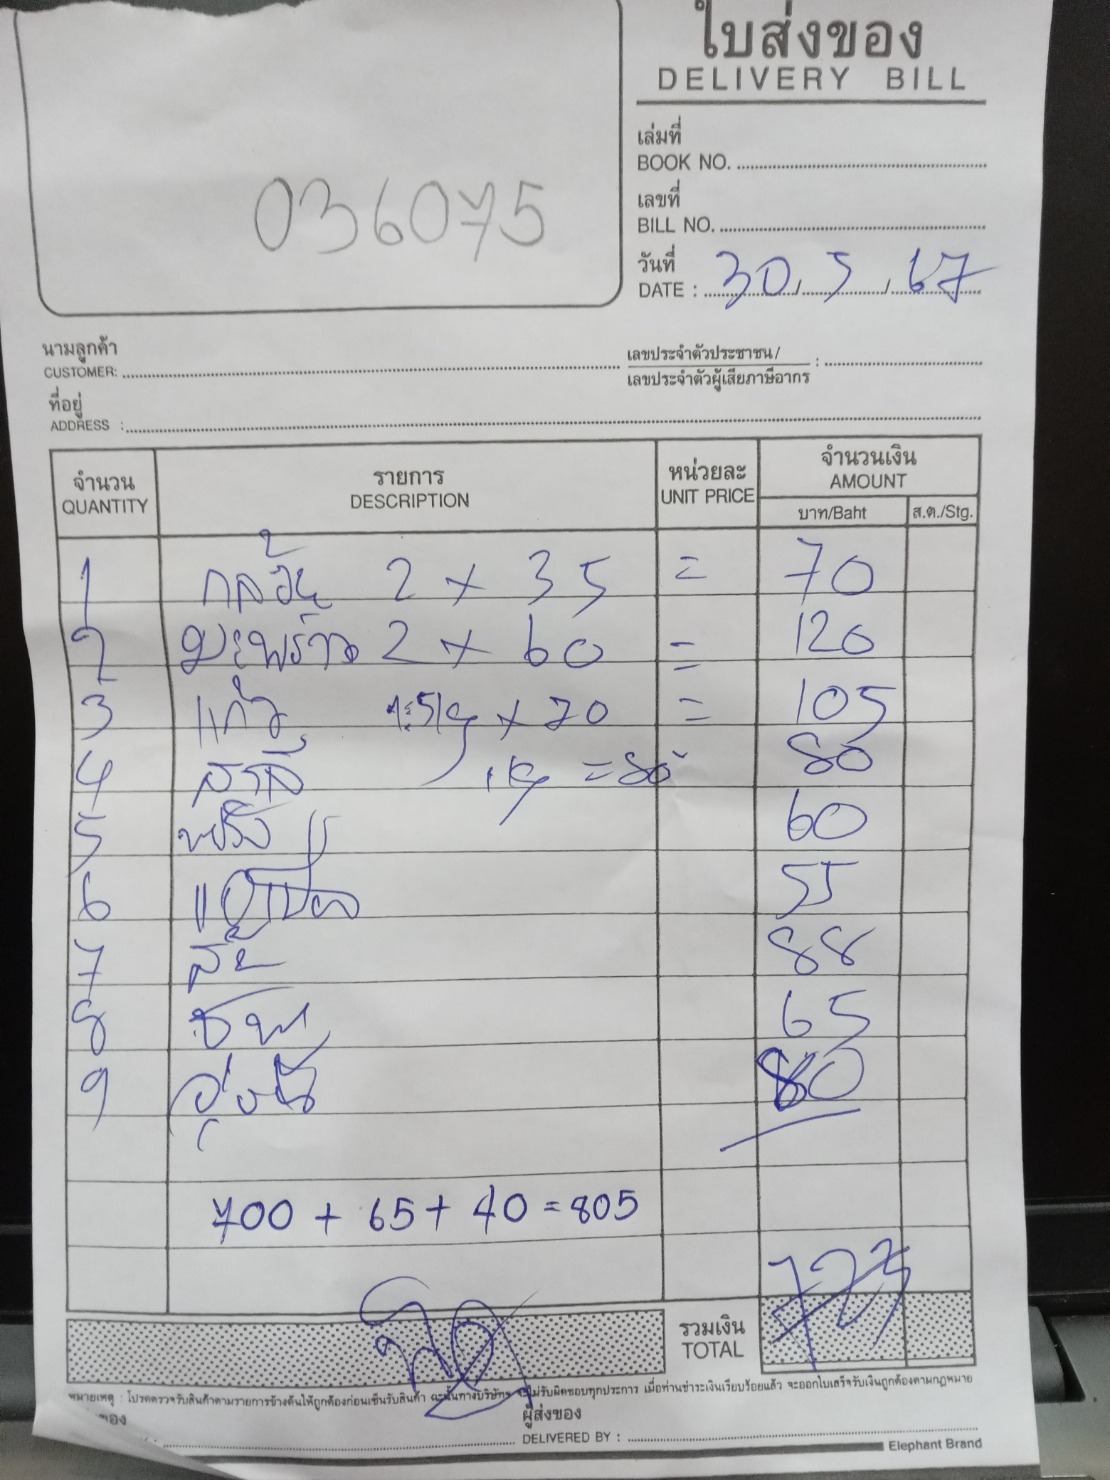 ใบส่งของ
DELIVERY BILL
036075
เล่มที่
BOOK NO.
เลขที่
BILL NO.
วันที่
DATE : 30 / 5 / 67
นามลูกค้า
CUSTOMER:
เลขประจำตัวประชาชน /
เลขประจำตัวผู้เสียภาษีอากร :
ที่อยู่
ADDRESS :
จำนวน รายการ หน่วยละ จำนวนเงิน
QUANTITY DESCRIPTION UNIT PRICE AMOUNT
บาท/Baht ส.ต./Stg.
1 กล้วย 2 x 35 = 70
2 มะพร้าว 2 x 60 = 120
3 แก้ว 1.5kg x 70 = 105
4 สาลี่ 1kg = 80 80
5 ฝรั่ง 60
6 แอปเปิล 55
7 ส้ม 88
8 ชมพู่ 65
9 องุ่น 80
700 + 65 + 40 = 805
723
รวมเงิน
TOTAL
หมายเหตุ : โปรดตรวจรับสินค้าตามรายการข้างต้นให้ถูกต้องก่อนเซ็นรับสินค้า ฉะนั้นทางบริษัทฯ จะไม่รับผิดชอบทุกประการ เมื่อท่านชำระเงินเรียบร้อยแล้ว จะออกใบเสร็จรับเงินถูกต้องตามกฎหมาย
ผู้ส่งของ
DELIVERED BY :
Elephant Brand